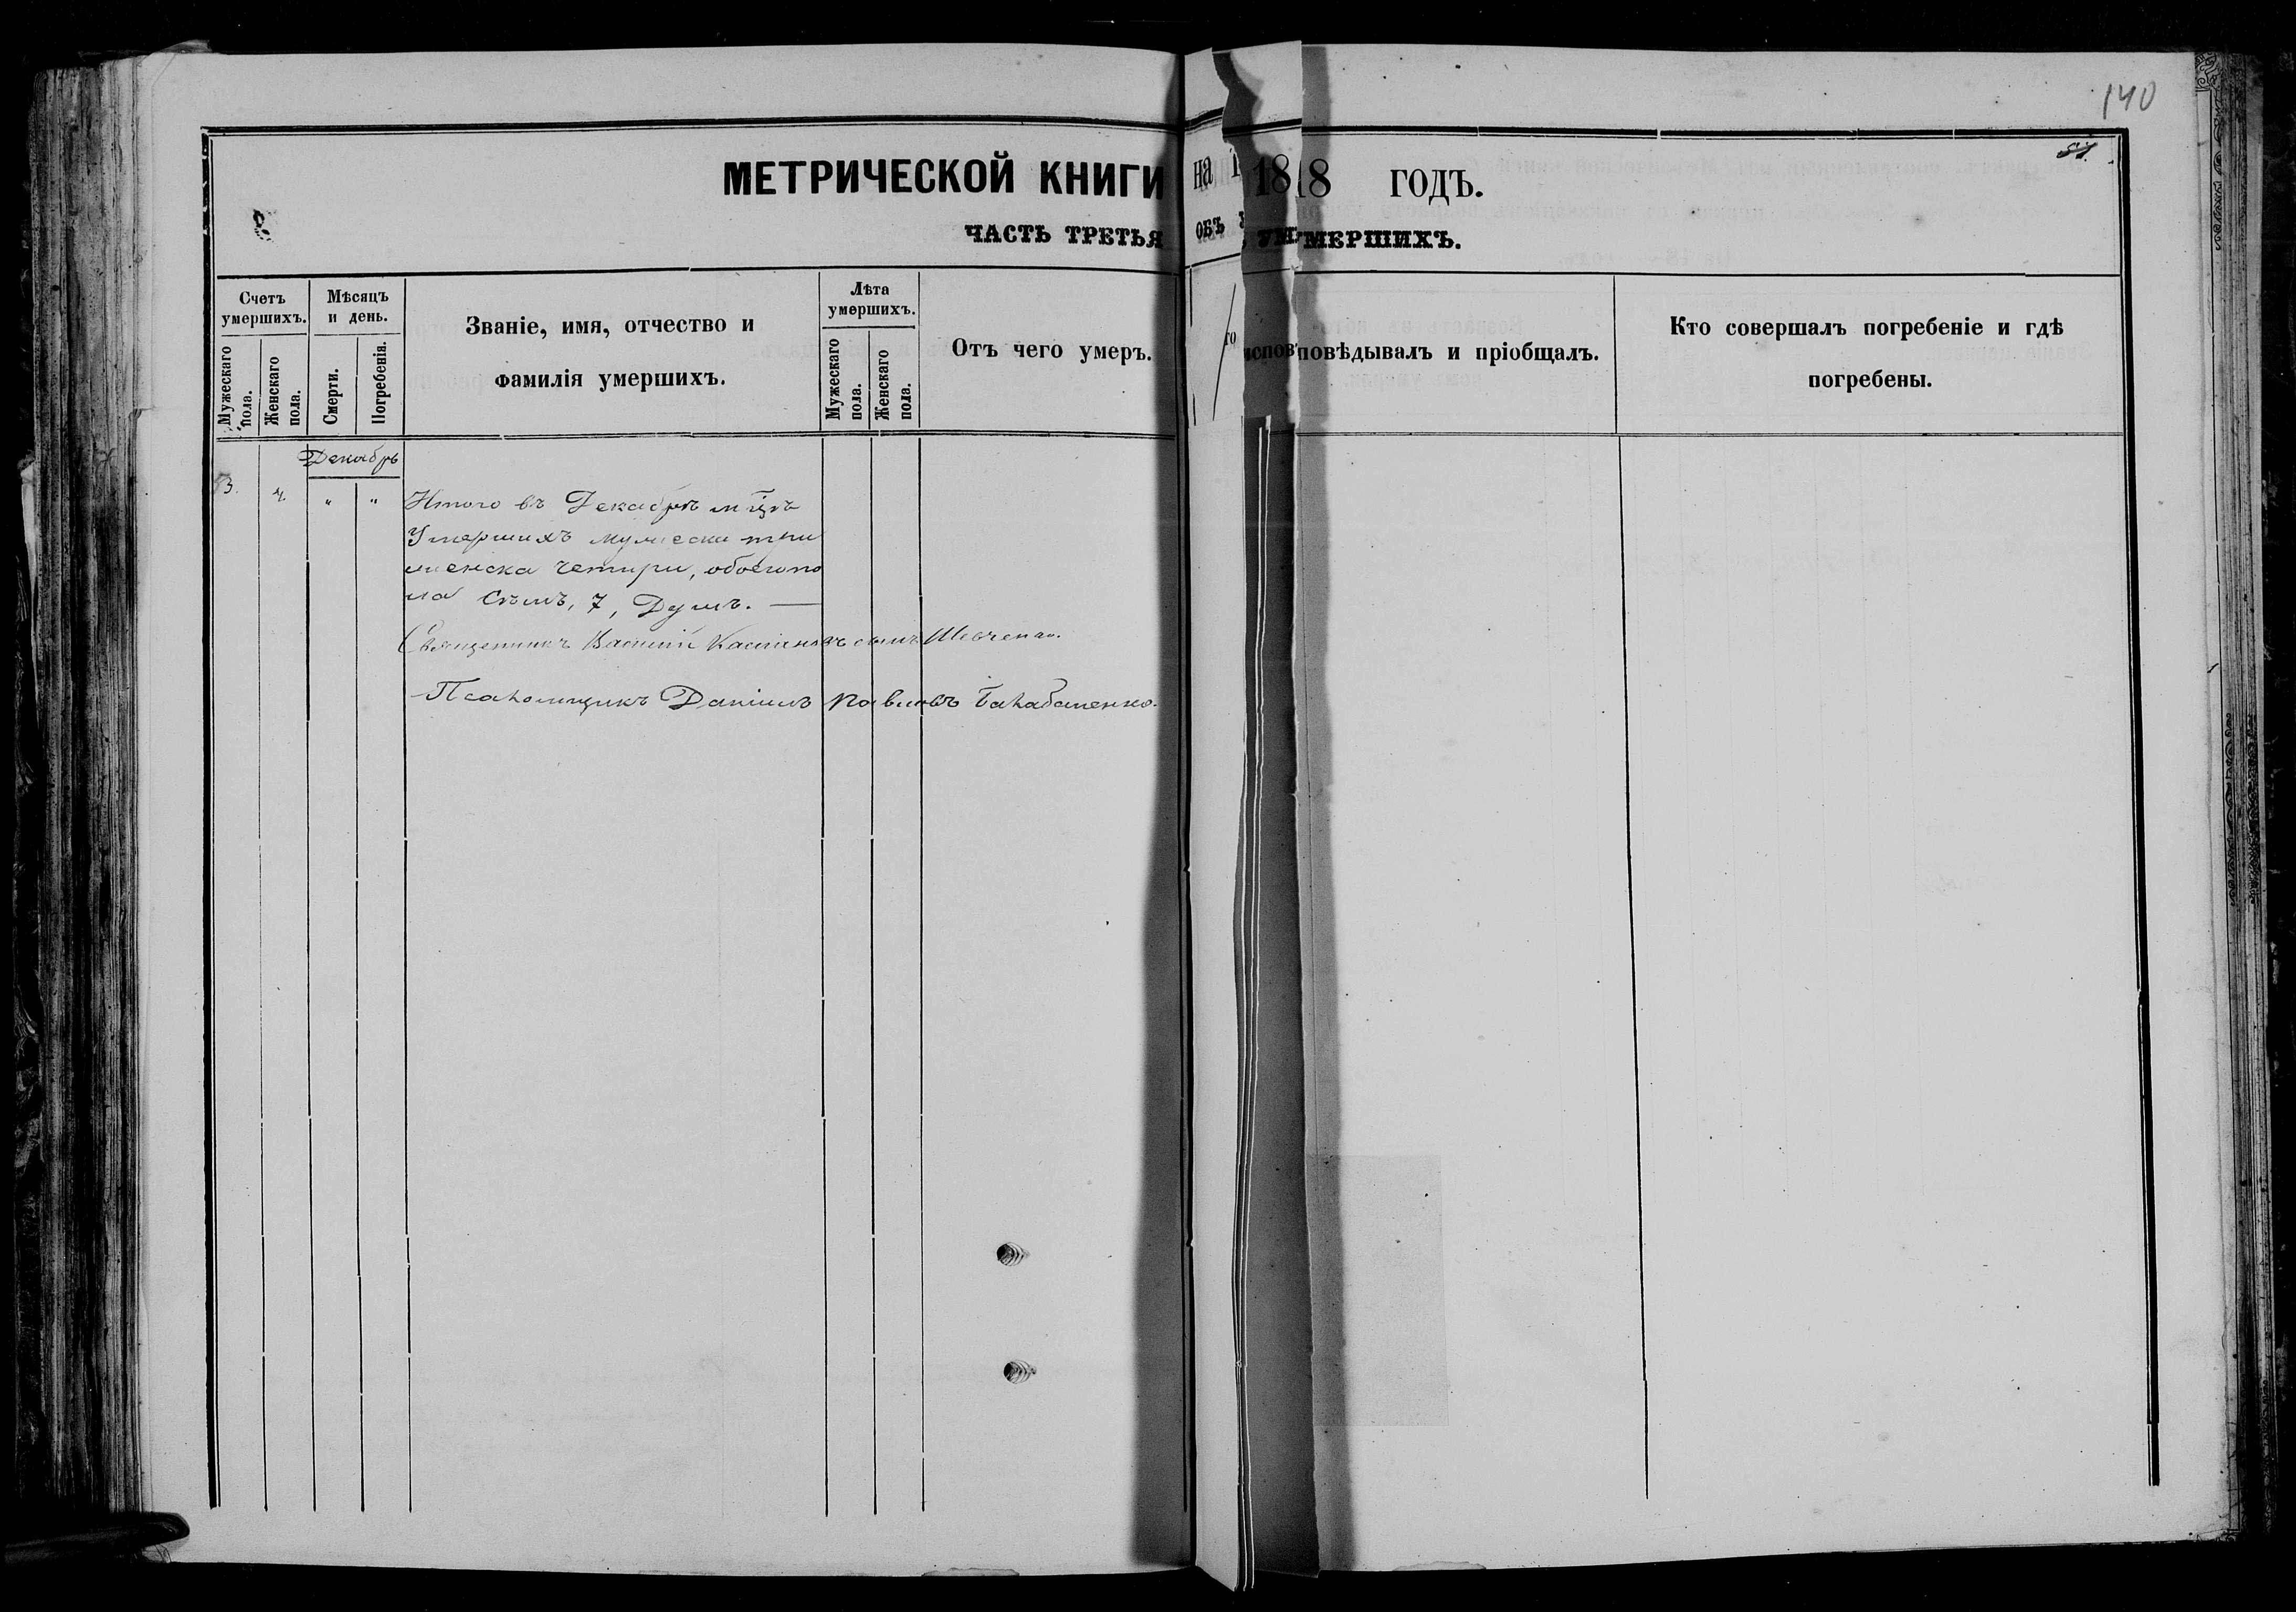 140
МЕТРИЧЕСКОЙ КНИГИ на 18 18 ГОДЪ.
ЧАСТЬ ТРЕТЬЯ объ УМЕРШИХЪ.
Счетъ умершихъ.
Мужескаго пола.
Женскаго пола.
Мѣсяцъ и день.
Смерти.
Погребенія.
Званіе, имя, отчество и
фамилія умершихъ.
Лѣта умершихъ.
Мужескаго пола.
Женскаго пола.
Отъ чего умеръ.
исповѣдывалъ и пріобщалъ.
Кто совершалъ погребеніе и гдѣ
погребены.
Декабрь
3. 4. " " Итого въ Декабрѣ м-цѣ
Умершихъ мужеска три
женска четыри, обоего по
ла Сѣмъ, 7, Душъ. —
Священникъ Василій сынъ Шевченко.
Псаломщикъ Даніилъ Павловъ